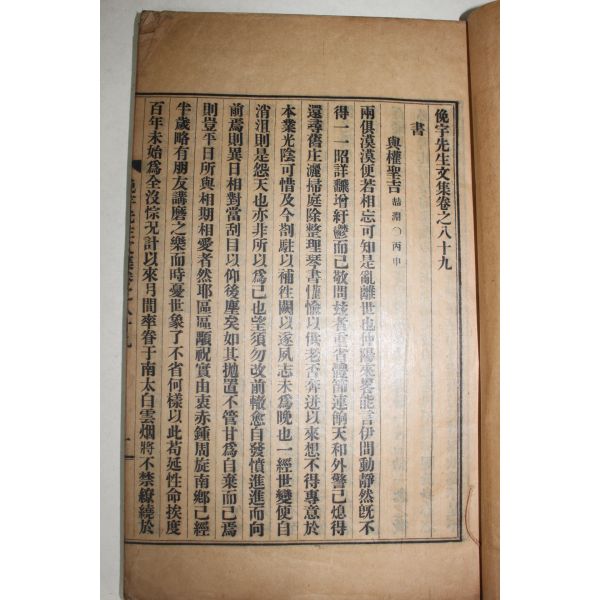 俛宇先生文集卷之八十九
書
與權聖吉 赫淵○丙申
兩俱漠漠便若相忘可知是亂離世也仲陽來畧能言伊間動靜然旣不
得一一昭詳糶增紆鬱而已敬問玆者重省體節連餉天和外警已熄得
還尋舊庄灑掃庭除整理琴書懽愉以供老否奔迸以來想不得專意於
本業光陰可惜及今劄駐以補徃闕以遂夙志未爲晩也一經世變便自
消沮則是怨天也亦非所以爲己也望須勿改前轍愈自發憤進進而向
前焉則異日相對當刮目以仰後塵矣如其抛置不管甘爲自棄而已焉
則豈平日所與相期相愛者然耶區區顒祝實由衷赤鍾周旋南鄕已經
半歲略有朋友講磨之樂而時憂世象了不省何樣以此苟延性命挨度
百年未始爲全沒悰况計以來月間率眷于南太白雲烟將不禁繚繞於